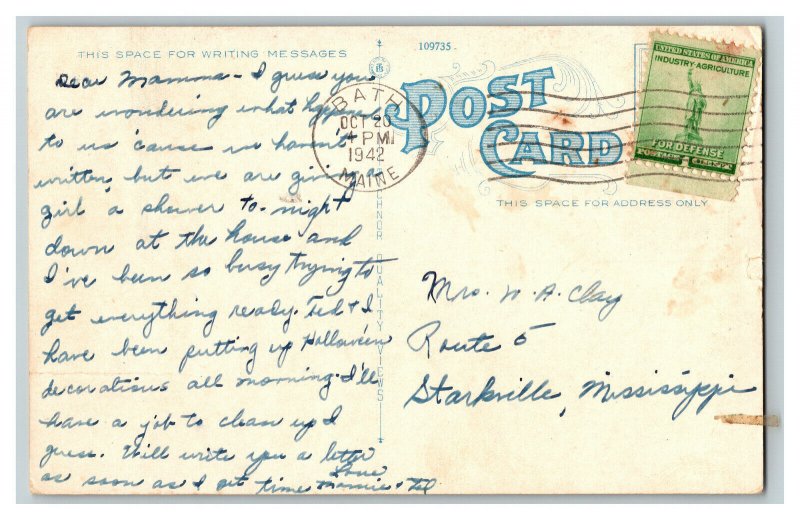 THIS SPACE FOR WRITING MESSAGES
Dear Mamma - I guess you
are wondering what happened
to us 'cause we haven't
written, but we are giving a
girl a shower to-night
down at the house and
I've been so busy trying to
get everything ready. Ted & I
have been putting up Halloween
decorations all morning. I'll
have a job to clean up I
guess. Will write you a letter
as soon as I get time
Love
& Ted
109735
POST
CARD
BATH
OCT 20
4 PM
1942
MAINE
UNITED STATES OF AMERICA
INDUSTRY AGRICULTURE
FOR DEFENSE
POSTAGE
THIS SPACE FOR ADDRESS ONLY
Mrs. W. A. Clay
Route 5
Starkville, Mississippi
QUALITY VIEWS